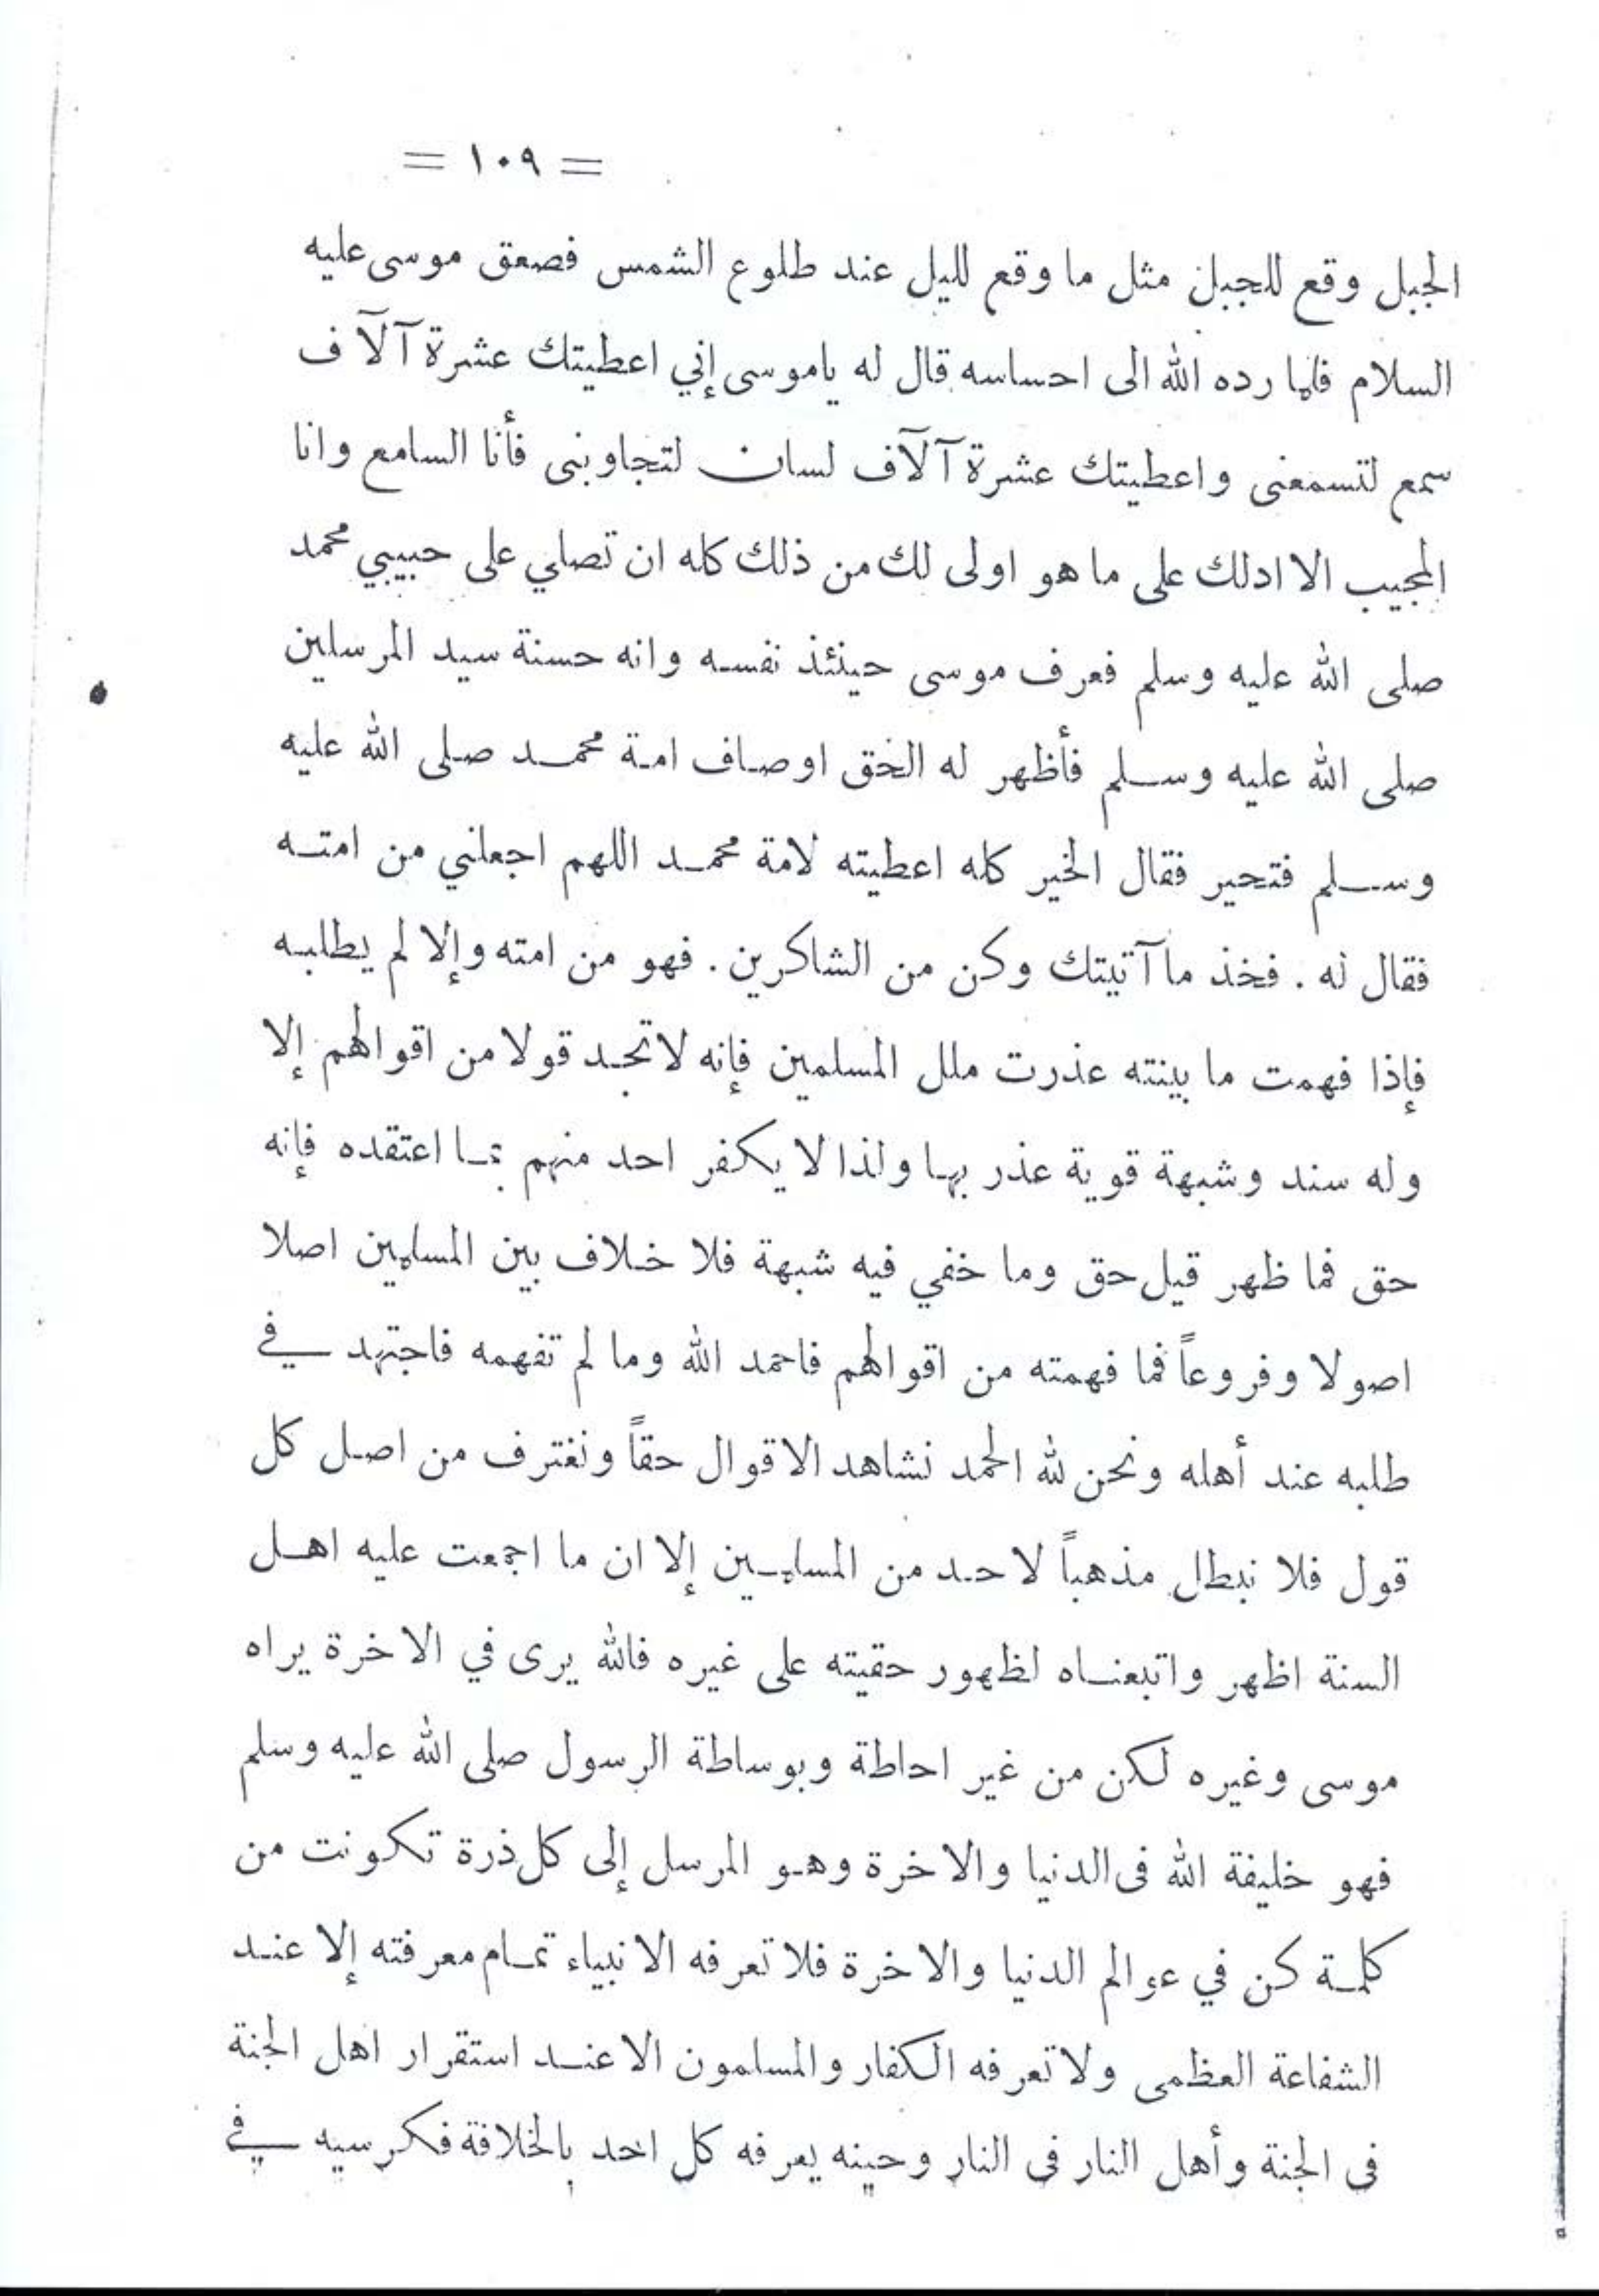 = ١٠٩ =
الجبل وقع للجبل مثل ما وقع لليل عند طلوع الشمس فصعق موسى عليه
السلام فلما رده الله الى احساسه قال له ياموسى إني اعطيتك عشرة آلآف
سمع لتسمعنى واعطيتك عشرة آلآف لسان لتجاوبنى فأنا السامع وانا
المجيب الا ادلك على ما هو اولى لك من ذلك كله ان تصلي على حبيبي محمد
صلى الله عليه وسلم فعرف موسى حينئذ نفسه وانه حسنة سيد المرسلين
صلى الله عليه وسلم فأظهر له الحق اوصاف امة محمد صلى الله عليه
وسلم فتحير فقال الخير كله اعطيته لامة محمد اللهم اجعلني من امته
فقال له . فخذ ما آتيتك وكن من الشاكرين . فهو من امته وإلا لم يطلبه
فإذا فهمت ما بينته عذرت ملل المسلمين فإنه لا تجد قولا من اقوالهم إلا
وله سند وشبهة قوية عذر بها ولذا لا يكفر احد منهم بما اعتقده فإنه
حق فما ظهر قيل حق وما خفي فيه شبهة فلا خلاف بين المسلمين اصلا
اصولا وفروعاً فما فهمته من اقوالهم فاحمد الله وما لم تفهمه فاجتهد في
طلبه عند أهله ونحن لله الحمد نشاهد الاقوال حقاً ونغترف من اصل كل
قول فلا نبطل مذهباً لاحد من المسلمين إلا ان ما اجمعت عليه اهل
السنة اظهر واتبعناه لظهور حقيته على غيره فالله يرى في الاخرة يراه
موسى وغيره لكن من غير احاطة وبوساطة الرسول صلى الله عليه وسلم
فهو خليفة الله فى الدنيا والاخرة وهو المرسل إلى كل ذرة تكونت من
كلمة كن في عوالم الدنيا والاخرة فلا تعرفه الانبياء تمام معرفته إلا عند
الشفاعة العظمى ولا تعرفه الكفار والمسلمون الا عند استقرار اهل الجنة
فى الجنة وأهل النار فى النار وحينه يعرفه كل احد بالخلافة فكرسيه في